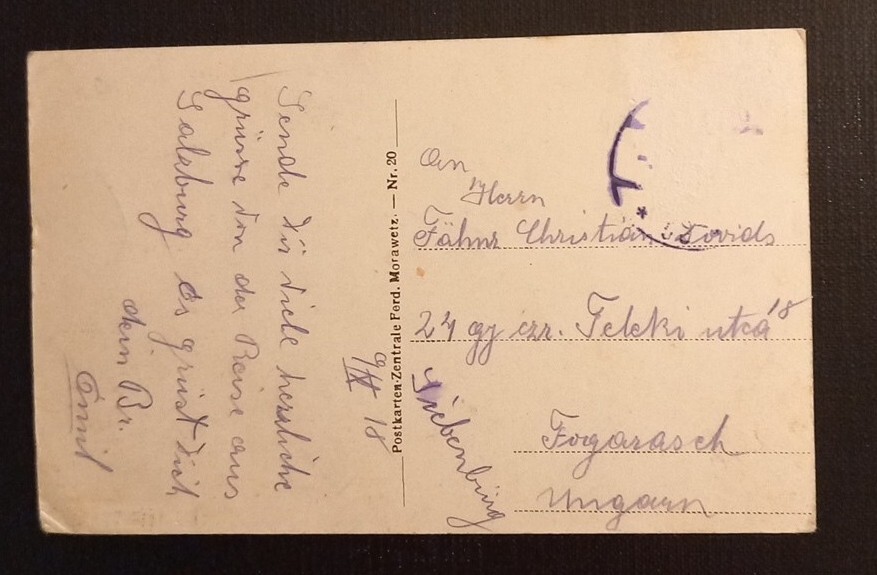 Sende dir viele herzliche
grüsse von der Reise aus
Salzburg. es grüst dich
dein Br.
Emil
9/II 18
Postkarten-Zentrale Ferd. Morawetz. — Nr. 20
An
Herrn
Fähnr Christian Dovids
24 gy ezr. Teleki utcá 18
Siebenbürg
Fogarasch
Ungarn